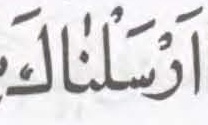 اَرْسَلْنٰاكَ